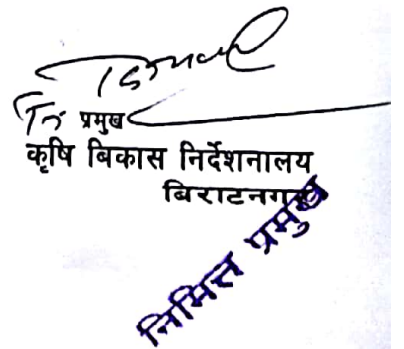 प्रमुख
कृषि बिकास निर्देशनालय
बिराटनगर
निमित्त प्रमुख